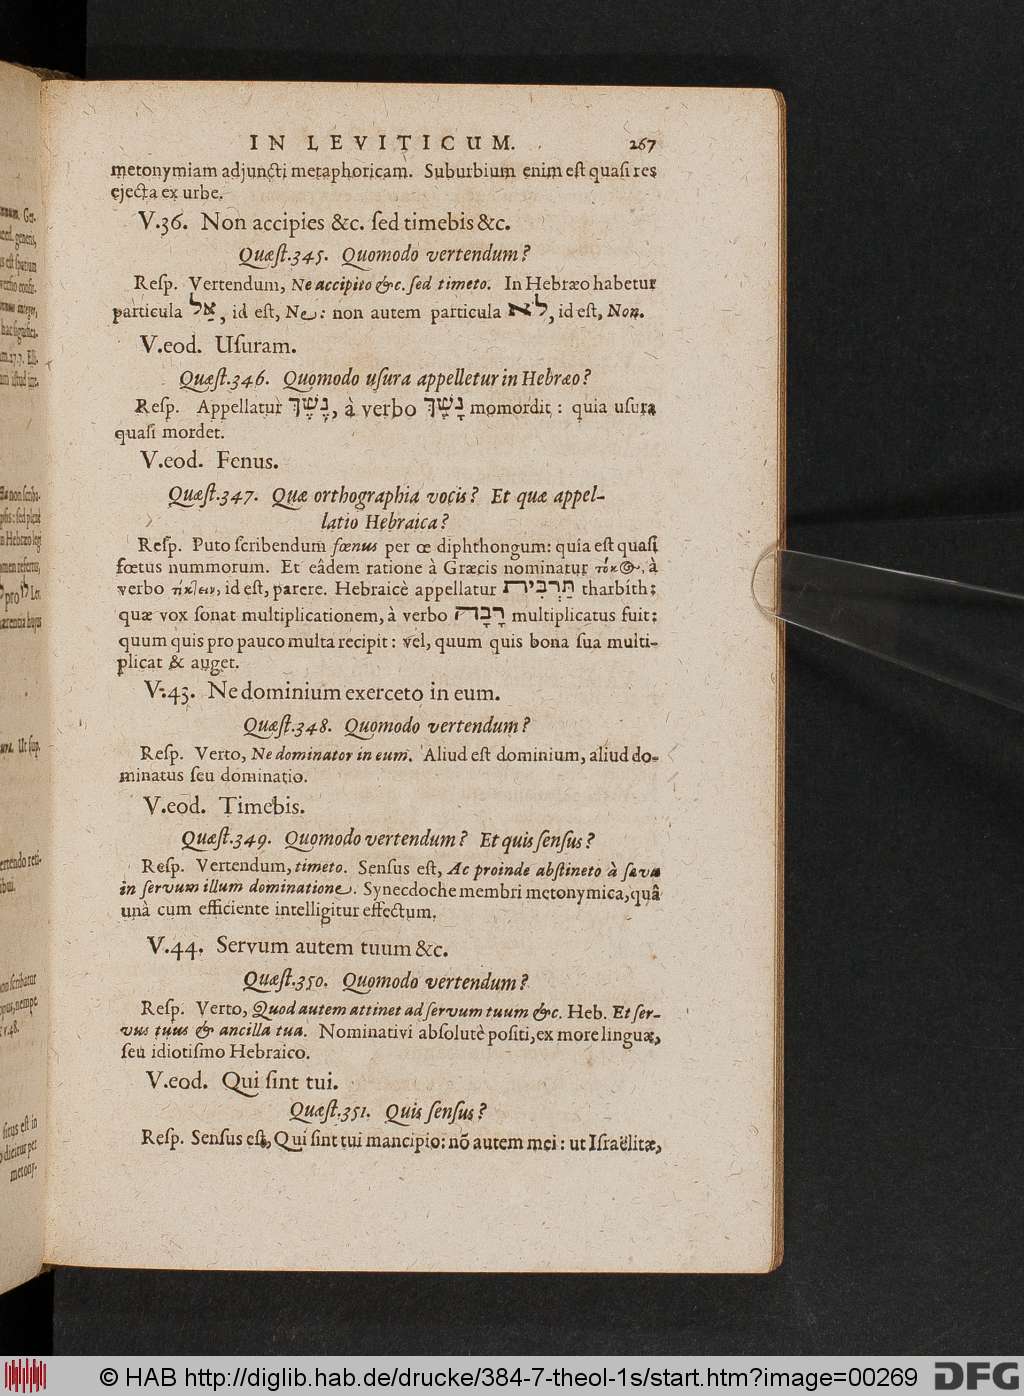 IN LEVITICUM. 267
metonymiam adjuncti metaphoricam. Suburbium enim eſt quaſi res
ejecta ex urbe.
V.36. Non accipies &c. ſed timebis &c.
Quæſt.345. Quomodo vertendum?
Reſp. Vertendum, Ne accipito &c. ſed timeto. In Hebræo habetur
particula אַל, id eſt, Ne: non autem particula לֹא, id eſt, Non.
V.eod. Uſuram.
Quæſt.346. Quomodo uſura appelletur in Hebræo?
Reſp. Appellatur נֶשֶׁךְ, à verbo נָשַׁךְ momordit: quia uſura
quaſi mordet.
V.eod. Fenus.
Quæſt.347. Quæ orthographia vocis? Et quæ appel-
latio Hebraica?
Reſp. Puto ſcribendum fœnus per œ diphthongum: quia eſt quaſi
fœtus nummorum. Et eâdem ratione à Græcis nominatur τόκος, à
verbo τίκτειν, id eſt, parere. Hebraicè appellatur תַּרְבִּית tharbíth:
quæ vox ſonat multiplicationem, à verbo רָבָה multiplicatus fuit:
quum quis pro pauco multa recipit: vel, quum quis bona ſua multi-
plicat & auget.
V.43. Ne dominium exerceto in eum.
Quæſt.348. Quomodo vertendum?
Reſp. Verto, Ne dominator in eum. Aliud eſt dominium, aliud do-
minatus ſeu dominatio.
V.eod. Timebis.
Quæſt.349. Quomodo vertendum? Et quis ſenſus?
Reſp. Vertendum, timeto. Senſus eſt, Ac proinde abſtineto à ſæva
in ſervum illum dominatione. Synecdoche membri metonymica, quâ
unà cum efficiente intelligitur effectum.
V.44. Servum autem tuum &c.
Quæſt.350. Quomodo vertendum?
Reſp. Verto, Quod autem attinet ad ſervum tuum &c. Heb. Et ſer-
vus tuus & ancilla tua. Nominativi abſolutè poſiti, ex more linguæ,
ſeu idiotiſmo Hebraico.
V.eod. Qui ſint tui.
Quæſt.351. Quis ſenſus?
Reſp. Senſus eſt, Qui ſint tui mancipio: nō autem mei: ut Iſraëlitæ,
© HAB http://diglib.hab.de/drucke/384-7-theol-1s/start.htm?image=00269
DFG